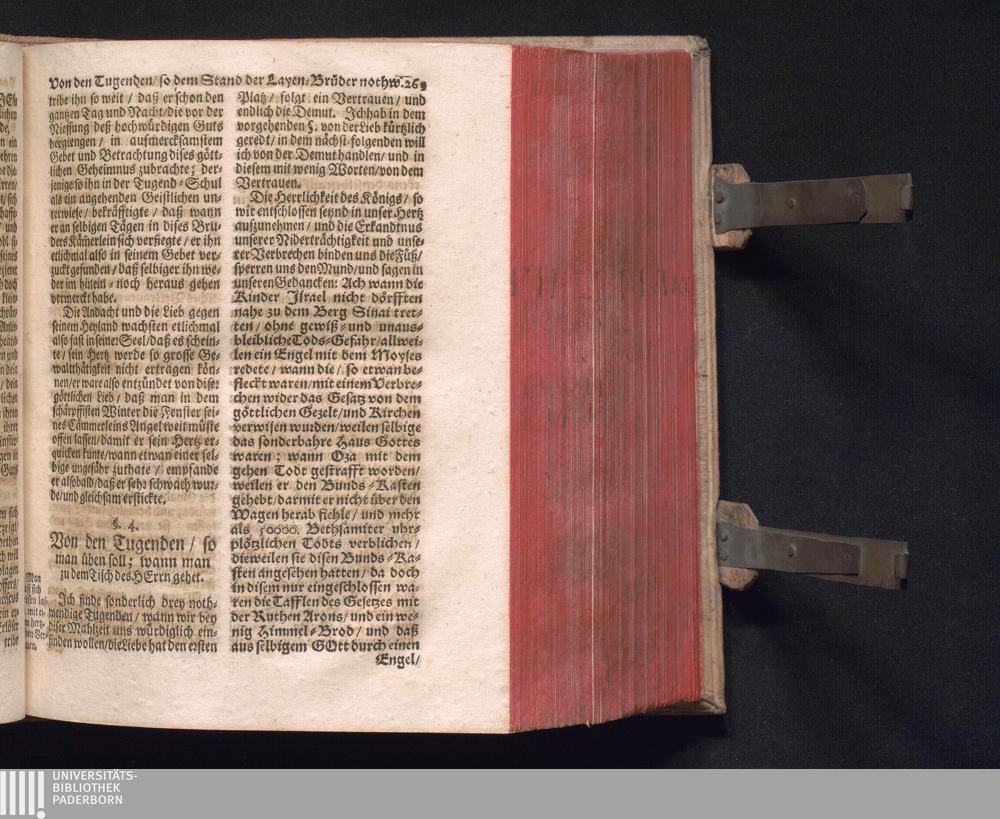 Von den Tugenden/ so dem Stand der Layen-Brüder nothw. 269
tribe ihn so weit / daß er schon den
gantzen Tag und Nacht/die vor der
Niessung deß hochwürdigen Guts
hergiengen / in aufmercksamstem
Gebet und Betrachtung dises gött-
lichen Geheimnus zubrachte; der-
jenige so ihn in der Tugend-Schul
als ein angehenden Geistlichen un-
terwiese/ bekräfftigte / daß wann
er an selbigen Tägen in dises Bru-
ders Kämerlein sich verfiegte/ er ihn
etlichmal also in seinem Gebet ver-
zuckt gefunden/ daß selbiger ihn we-
der im hinein- noch heraus gehen
vermerckt habe.
Die Andacht und die Lieb gegen
seinem Heyland wachsten etlichmal
also fast in seiner Seel/daß es schein-
te/ sein Hertz werde so grosse Ge-
waltthätigkeit nicht ertragen kön-
nen/er ware also entzündet von diser
göttlichen Lieb/ daß man in dem
schärpffisten Winter die Fenster sei-
nes Cämmerleins Angelweit müste
offen lassen/damit er sein Hertz er-
quicken kunte/wann etwan einer sel-
bige ungefähr zuthate / empfande
er alsobald/daß er sehr schwach wur-
de/und gleichsam erstickte.
§. 4.
Von den Tugenden / so
man üben soll; wann man
zu dem Tisch des HErrn gehet.
Ich finde sonderlich drey noth-
wendige Tugenden/ wann wir bey
diser Mahlzeit uns würdiglich ein-
finden wollen/die Liebe hat den ersten
Platz/ folgt ein Vertrauen/ und
endlich die Demut. Ich hab in dem
vorgehenden §. von der Lieb kürtzlich
geredt/ in dem nächst-folgenden will
ich von der Demut handlen/ und in
diesem mit wenig Worten/von dem
Vertrauen.
Die Herrlichkeit des Königs/ so
wir entschlossen seynd in unser Hertz
aufzunehmen/ und die Erkandtnus
unserer Niderträchtigkeit und unse-
rer Verbrechen binden uns die Füß/
sperren uns den Mund/und sagen in
unseren Gedancken: Ach wann die
Kinder Israel nicht dörfften
nahe zu dem Berg Sinai tret-
ten/ ohne gewiß-und unaus-
bleibliche Tods-Gefahr/allwei-
len ein Engel mit dem Moyses
redete/ wann die/ so etwan be-
fleckt waren/mit einem Verbre-
chen wider das Gesatz von dem
göttlichen Gezelt/und Kirchen
verwisen wurden/weilen selbige
das sonderbahre Haus Gottes
waren; wann Oza mit dem
gehen Todt gestrafft worden/
weilen er den Bunds-Kasten
gehebt/darmit er nicht über den
Wagen herab fiehle/ und mehr
als 50000. Bethsamiter uhr-
plötzlichen Todts verblichen/
dieweilen sie disen Bunds-Ka-
sten angesehen hatten/ da doch
in disem nur eingeschlossen wa-
ren die Tafflen des Gesetzes mit
der Ruthen Arons/ und ein we-
nig Himmel-Brod/ und daß
aus selbigem GOtt durch einen
Engel/
UNIVERSITÄTS-
BIBLIOTHEK
PADERBORN